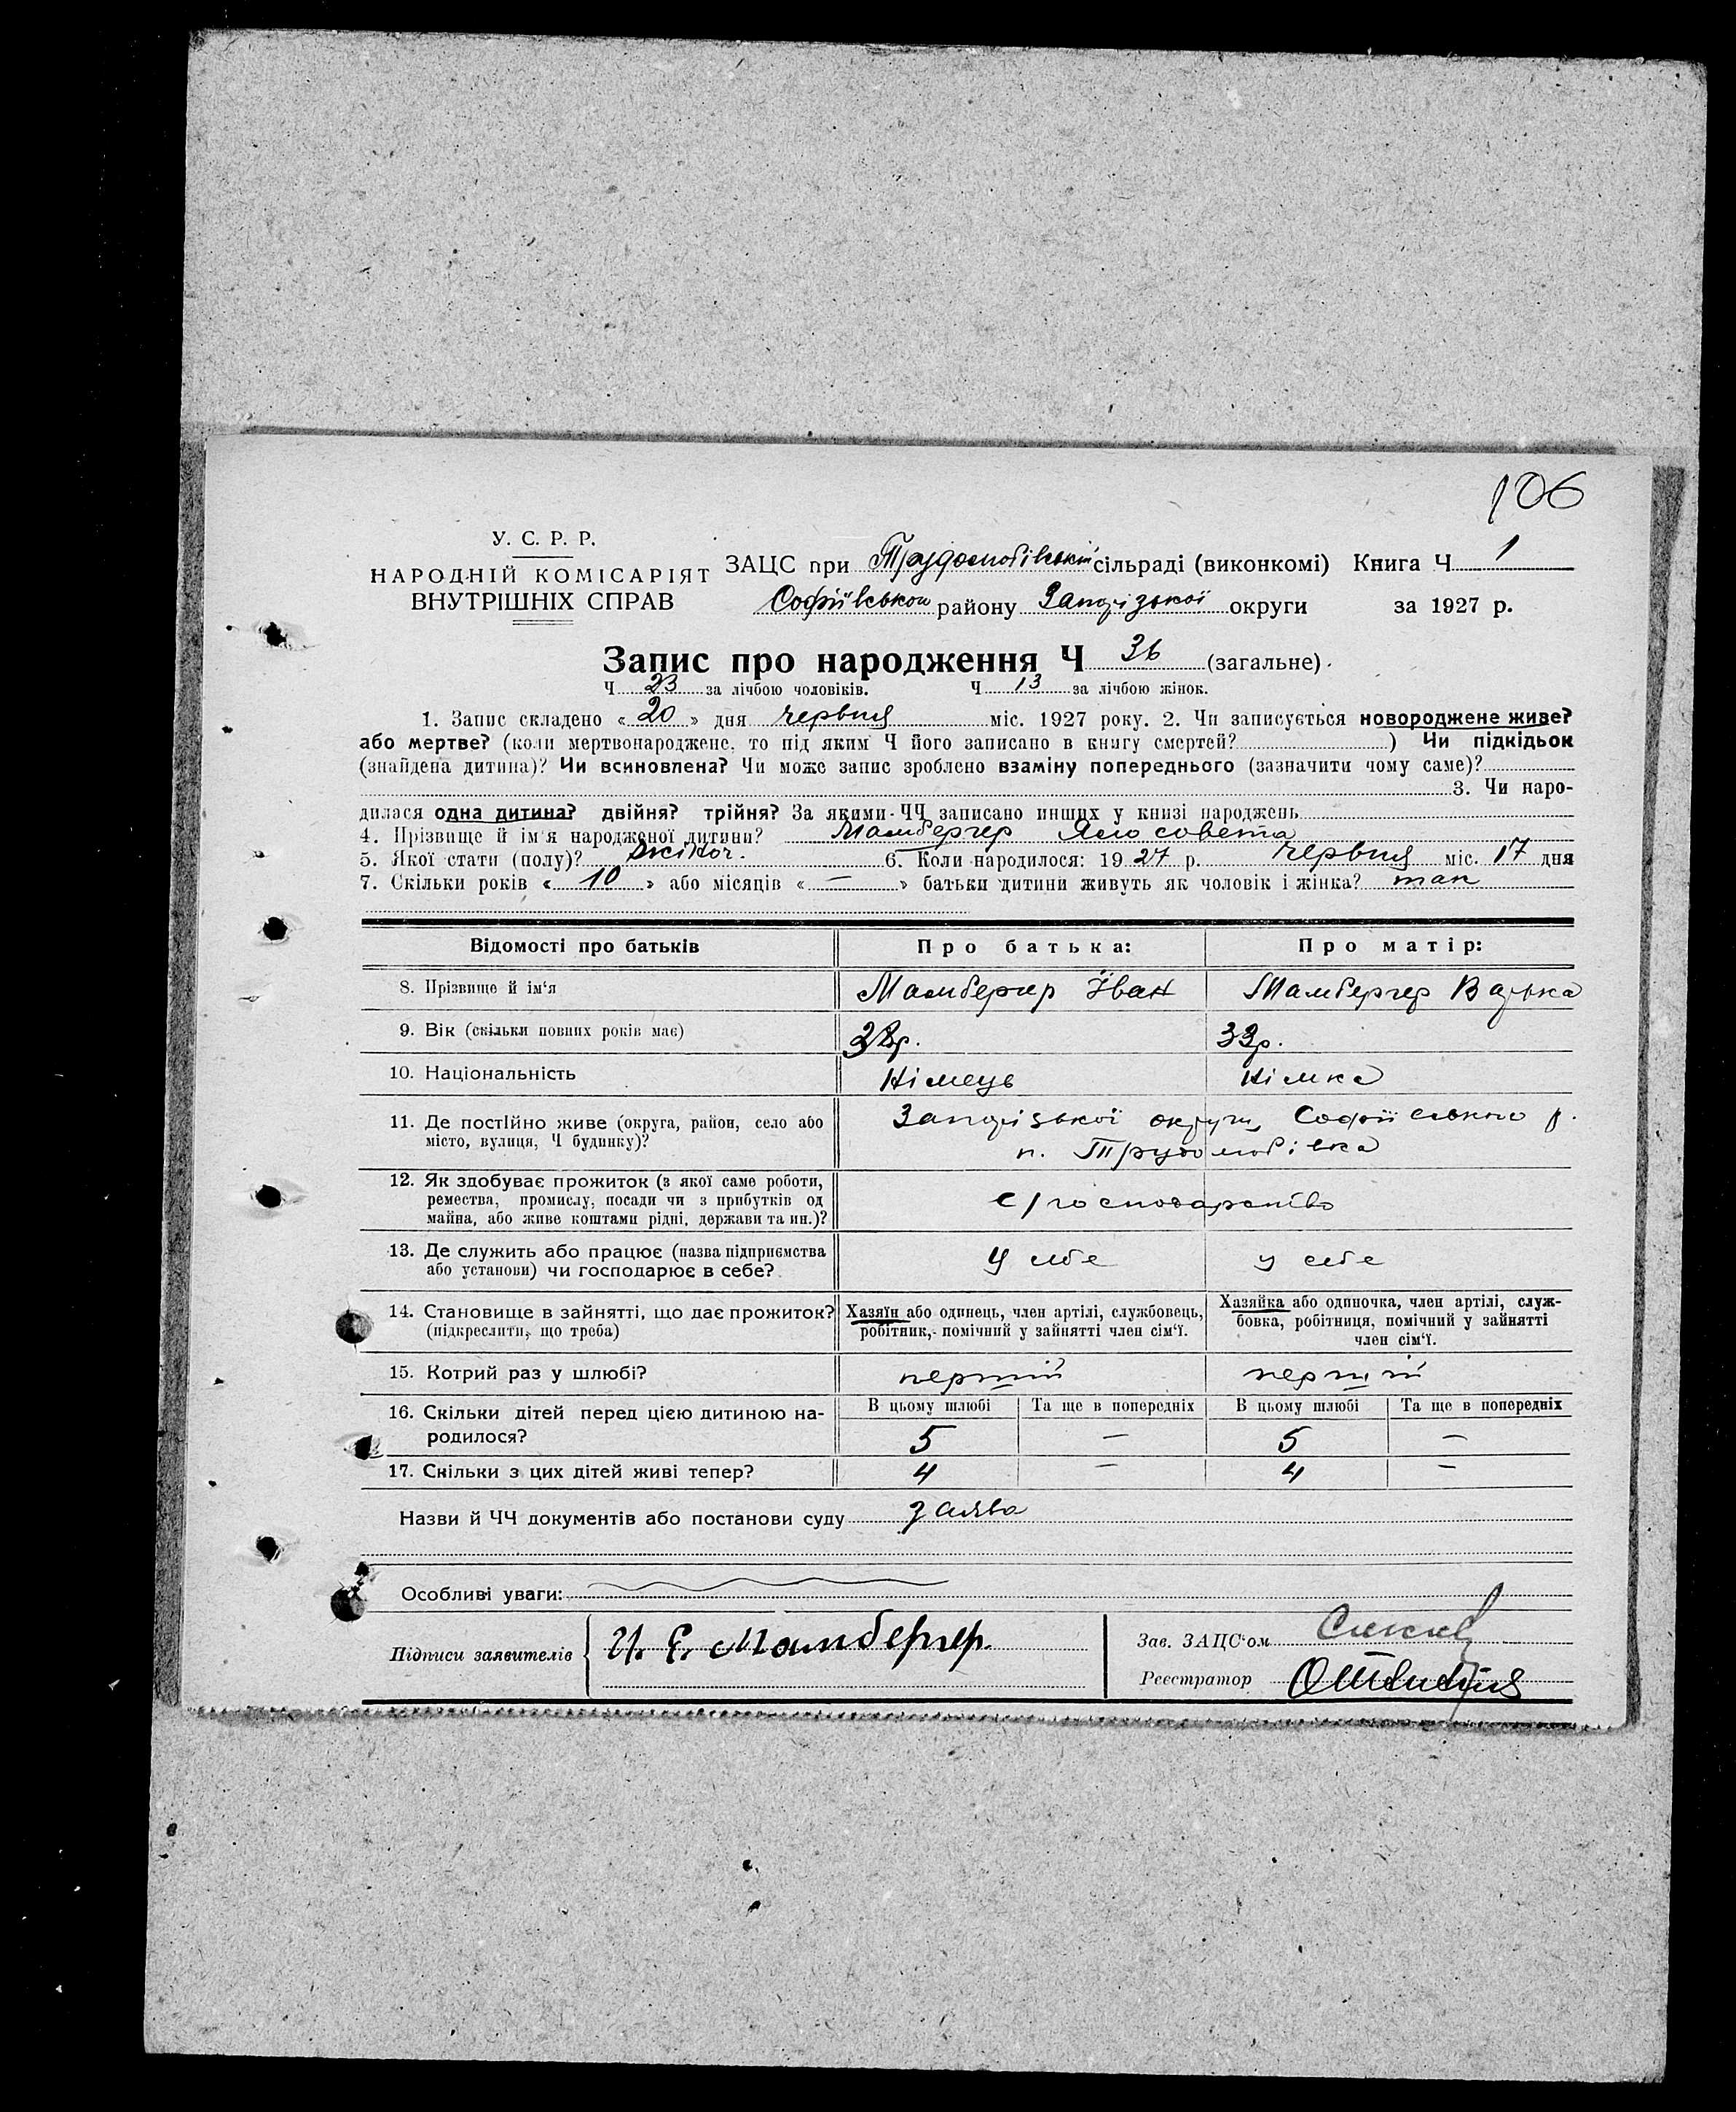 106
У. С. Р. Р.
НАРОДНІЙ КОМІСАРІЯТ
ВНУТРІШНІХ СПРАВ
ЗАЦС при Трудолюбівській сільраді (виконкомі) Книга Ч 1
Софіївського району Запорізької округи за 1927 р.
Запис про народження Ч 36 (загальне).
Ч 23 за лічбою чоловіків. Ч 13 за лічбою жінок.
1. Запис складено «20» дня червня міс. 1927 року. 2. Чи записується новороджене живе?
або мертве? (коли мертвонароджене, то під яким Ч його записано в книгу смертей? ) Чи підкідьок
(знайдена дитина)? Чи всиновлена? Чи може запис зроблено взаміну попереднього (зазначити чому саме)?
3. Чи наро-
дилася одна дитина? двійня? трійня? За якими ЧЧ записано инших у книзі народжень
4. Прізвище й ім'я народженої дитини? Мамбергер
5. Якої стати (полу)? жіноч. 6. Коли народилося: 1927 р. червня міс. 17 дня
7. Скільки років «10» або місяців «—» батьки дитини живуть як чоловік і жінка? так
Відомості про батьків Про батька: Про матір:
8. Прізвище й ім'я Мамбергер Іван Мамбергер
9. Вік (скільки повних років має) р. р.
10. Національність Німець Німка
11. Де постійно живе (округа, район, село або
місто, вулиця, Ч будинку)?
Запорізької округи, Софіївського р.
п. Трудолюбівка
12. Як здобуває прожиток (з якої саме роботи,
ремества, промислу, посади чи з прибутків од
майна, або живе коштами рідні, держави та ин.)?
с/господарство
13. Де служить або працює (назва підприємства
або установи) чи господарює в себе?
у себе у себе
14. Становище в зайнятті, що дає прожиток?
(підкреслити, що треба)
Хазяїн або одинець, член артілі, службовець,
робітник, помічний у зайнятті член сім'ї.
Хазяйка або одиночка, член артілі, служ-
бовка, робітниця, помічний у зайнятті
член сім'ї.
15. Котрий раз у шлюбі? перший перший
16. Скільки дітей перед цією дитиною на-
родилося?
В цьому шлюбі Та ще в попередніх В цьому шлюбі Та ще в попередніх
5 — 5 —
17. Скільки з цих дітей живі тепер? 4 — 4 —
Назви й ЧЧ документів або постанови суду заява
Особливі уваги:
Підписи заявителів И. Е. Мамбергер.
Зав. ЗАЦС'ом
Реєстратор